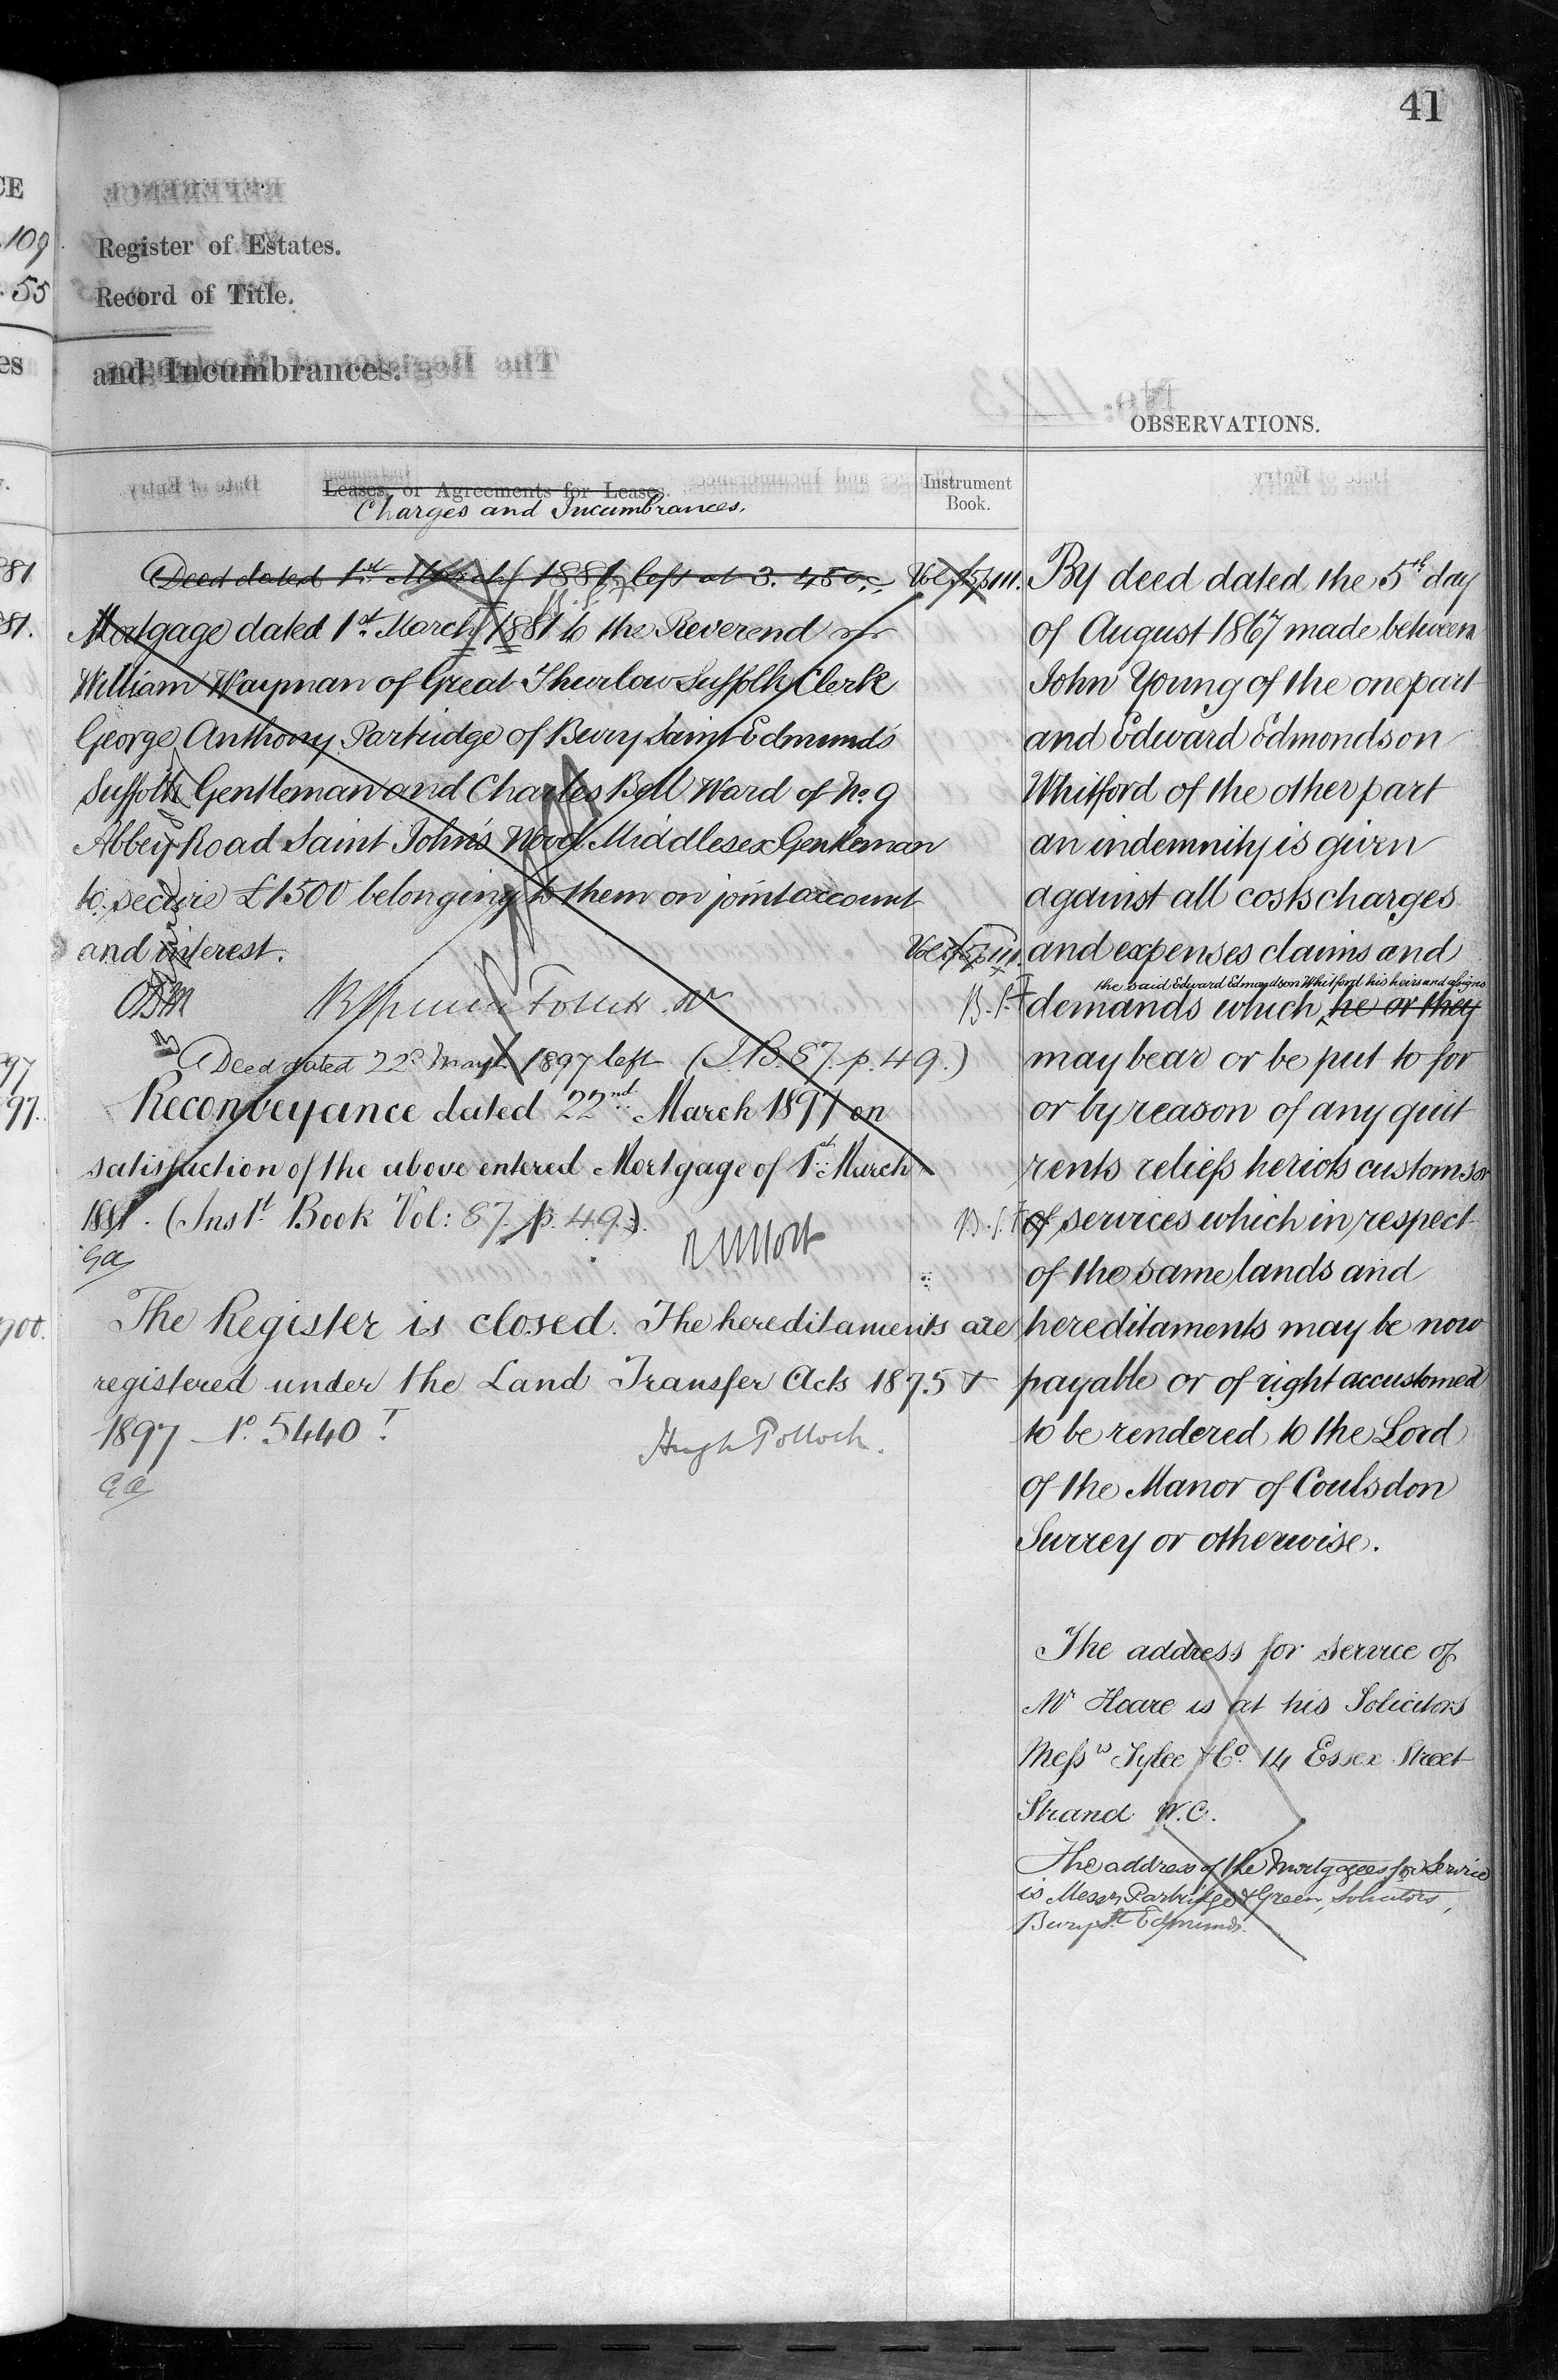 41
CE
109
55
es
Register of Estates.
Record of Title.
and Incumbrances.
OBSERVATIONS.
Leases, or Agreements for Leases.
Charges and Incumbrances.
Instrument
Book.
81
Deed dated 1st March 1881 left at 3. 45
81.
Mortgage dated 1st March 1881 to the Reverend
William Wayman of Great Thurlow Suffolk Clerk
George Anthony Partridge of Bury Saint Edmunds
Suffolk Gentleman and Charles Bell Ward of No. 9
Abbey Road Saint John's Wood Middlesex Gentleman
to secure £1500 belonging to them on joint account
and interest.
97
Deed dated 22d 1897 left (I.B. 87. p. 49.)
97.
Reconveyance dated 22nd March 1897 on
satisfaction of the above entered Mortgage of 1st March
1881. (Inst. Book Vol: 87. p. 49.).
The Register is closed. The hereditaments are
registered under the Land Transfer Acts 1875 &
1897 No. 5440
Hugh Pollock.
By deed dated the 5th day
of August 1867 made between
John Young of the one part
and Edward Edmondson
Whitford of the other part
an indemnity is given
against all costs charges
and expenses claims and
the said Edward Edmondson Whitford his heirs and assigns
demands which he or they
may bear or be put to for
or by reason of any quit
rents reliefs heriots customs or
of services which in respect
of the same lands and
hereditaments may be now
payable or of right accustomed
to be rendered to the Lord
of the Manor of Coulsdon
Surrey or otherwise.
The address for service of
Mr Hoare is at his Solicitors
Messrs Tylee & Co. 14 Essex Street
Strand W.C.
The address of the Mortgagees for Service
is Messrs Partridge & Green, Solicitors,
Bury St. Edmunds.